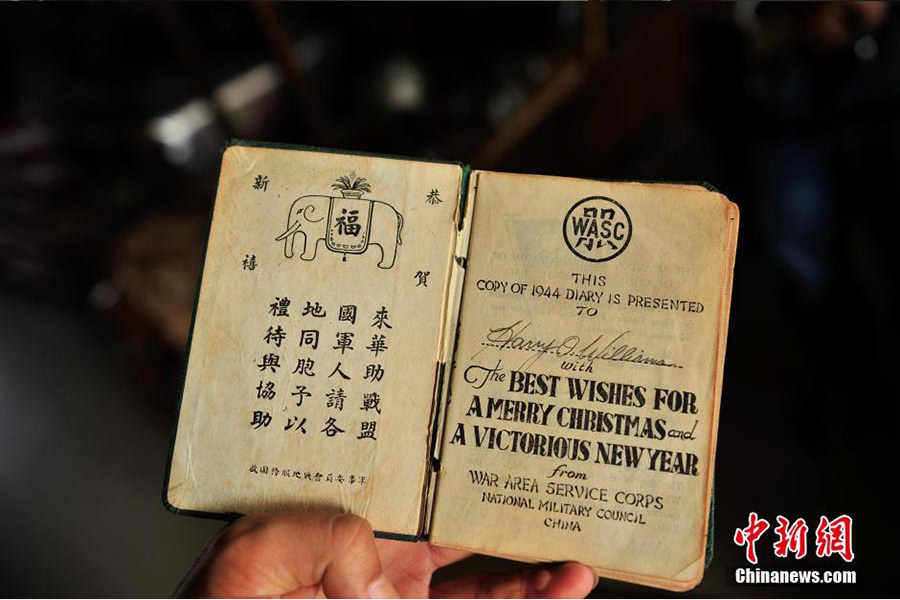 恭賀
新禧
福
來華助戰盟
國軍人請各
地同胞予以
禮待與協助
軍事委員會戰地服務團啟
WASC
THIS
COPY OF 1944 DIARY IS PRESENTED
TO
Harry O. Williams
with
The BEST WISHES FOR
A MERRY CHRISTMAS and
A VICTORIOUS NEW YEAR
from
WAR AREA SERVICE CORPS
NATIONAL MILITARY COUNCIL
CHINA
中新網
Chinanews.com